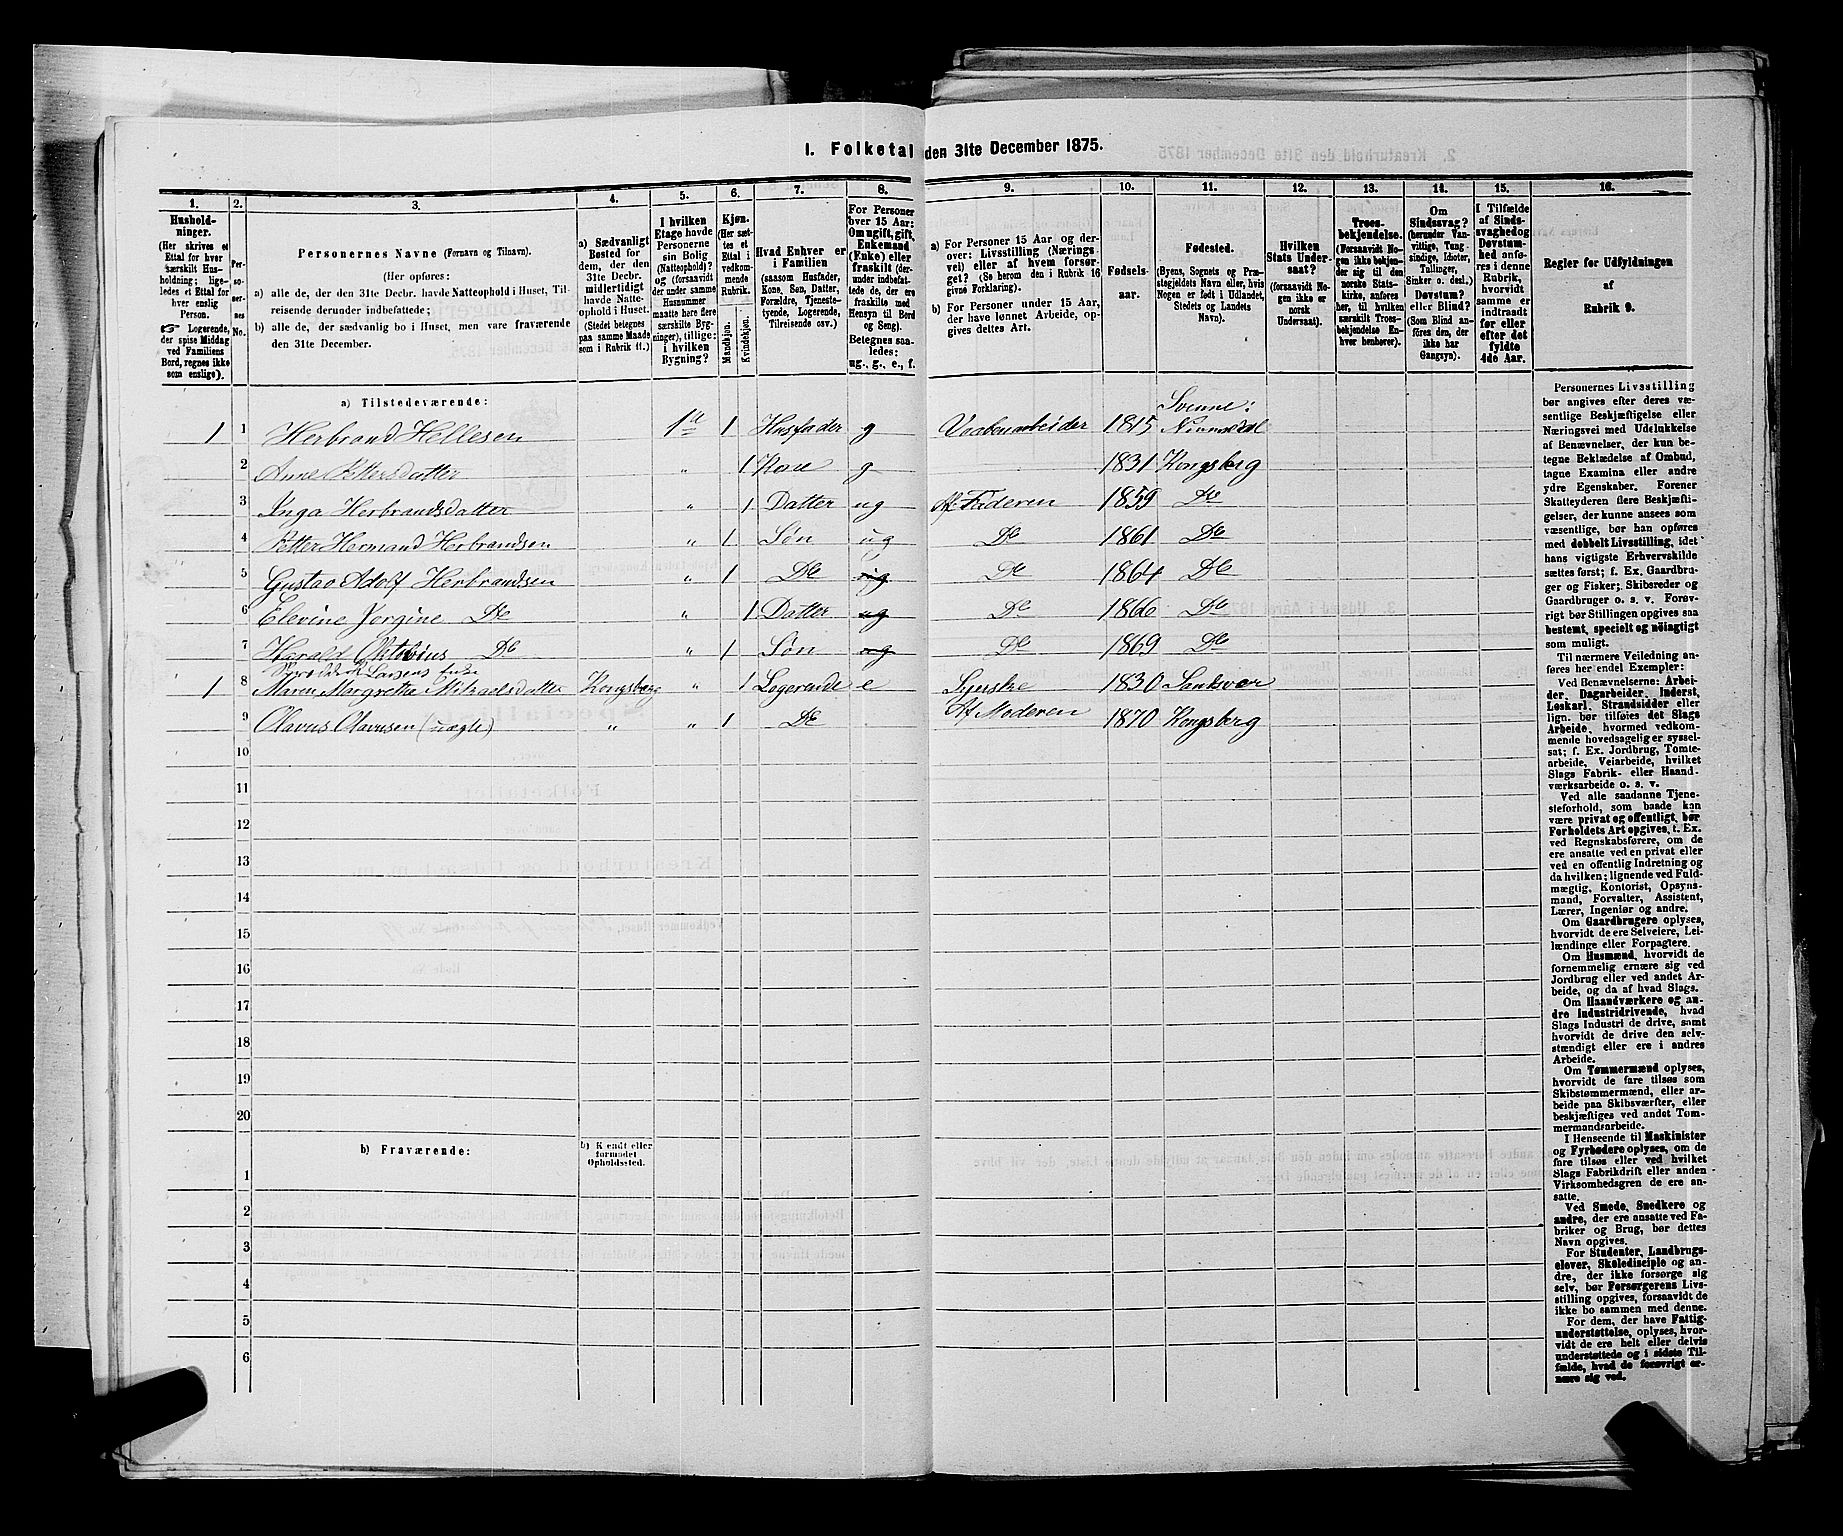 I. Folketal den 31te December 1875.
1.
2.
3.
4.
5.
6.
7.
8.
9.
10.
11.
12.
13.
14.
15.
16.
Hushold-
ninger.
(Her skrives et
Ettal for hver
særskilt Hus-
holdning; lige-
ledes et Ettal for
hver enslig
Person.
☞ Logerende,
der spise Middag
ved Familiens
Bord, regnes ikke
som enslige).
Per-
so-
ner-
nes
No.
Personernes Navne (Fornavn og Tilnavn).
(Her opføres:
a) alle de, der den 31te Decbr. havde Natteophold i Huset, Til-
reisende derunder indbefattede;
b) alle de, der sædvanlig bo i Huset, men vare fraværende
den 31te December.
a) Sædvanligt
Bosted for
dem, der den
31te Decbr.
midlertidigt
havde Natte-
ophold i Huset.
(Stedet betegnes
paa samme Maade
som i Rubrik 11.)
I hvilken
Etage havde
Personerne
sin Bolig
(Natteophold)?
og (forsaavidt
der under samme
Husnummer
maatte høre flere
særskilte Byg-
ninger), tillige:
i hvilken
Bygning?
Kjøn.
(Her sæt-
tes et
Ettal i
vedkom-
mende
Rubrik.
Mandkjøn.
Kvindekjøn.
Hvad Enhver er
i Familien
(saasom Husfader,
Kone, Søn, Datter,
Forældre, Tjeneste-
tyende, Logerende,
Tilreisende osv.)
For Personer
over 15 Aar:
Om ugift, gift,
Enkemand
(Enke) eller
fraskilt (der-
under indbefat-
tede de, der ere
fraskilte med
Hensyn til Bord
og Seng).
Betegnes saa-
ledes:
ug., g., e., f.
a) For Personer 15 Aar og der-
over: Livsstilling (Nærings-
vei) eller af hvem forsør-
get. (Se herom den i Rubrik 16
givne Forklaring).
b) For Personer under 15 Aar,
der have lønnet Arbeide, op-
gives dettes Art.
Fødsels-
aar.
Fødested.
(Byens, Sognets og Præ-
stegjeldets Navn eller, hvis
Nogen er født i Udlandet,
Stedets og Landets
Navn).
Hvilken
Stats Under-
saat?
(forsaavidt No-
gen ikke er
norsk
Undersaat).
Troes-
bekjendelse.
(Forsaavidt No-
gen ikke bekjen-
der sig til den
norske Stats-
kirke, anføres
her, til hvilken
særskilt Troes-
bekjendelse En-
hver henhører).
Om
Sindssvag?
(herunder Van-
vittige, Tung-
sindige, Idioter,
Tullinger,
Sinker o. desl.)
Døvstum?
eller Blind?
(Som Blind an-
føres den, der
ikke har
Gangsyn).
I Tilfælde
af Sinds-
svaghed og
Døvstum-
hed anfø-
res i denne
Rubrik,
hvorvidt
samme er
indtraadt
før eller
efter det
fyldte
4de Aar.
Regler for Udfyldningen
af
Rubrik 9.
a) Tilstedeværende:
1 1 Herbrand Hellesen 1ste 1 Husfader g Vaabenarbeider 1815 Svenne: Nummedal
2 Anne Pettersdatter " 1 Kone g 1831 Kongsberg
3 Inga Herbrandsdatter " 1 Datter ug Af Faderen 1859 Do
4 Petter Hermand Herbrandsen " 1 Søn ug Do 1861 Do
5 Gustav Adolf Herbrandsen " 1 Do ug Do 1864 Do
6 Elevine Jørgine Do " 1 Datter ug Do 1866 Do
7 Harald Oktobius Do " 1 Søn ug Do 1869 Do
Larsens Enke
1 8 Maren Margrethe Mikaelsdatter Kongsberg " 1 Logerende e Syerske 1830 Sandsvær
9 Olavus Olavusen (uægte) " " 1 Do Af Moderen 1870 Kongsberg
10
11
12
13
14
15
16
17
18
19
20
b) Fraværende:
b) Kendt eller
formodet
Opholdssted.
1
2
3
4
5
6
Personernes Livsstilling
bør angives efter deres væ-
sentlige Beskjæftigelse eller
Næringsvei med Udelukkelse
af Benævnelser, der kun be-
tegne Beklædelse af Ombud,
tagne Examina eller andre
ydre Egenskaber. Forener
Skatteyderen flere Beskjæfti-
gelser, der kunne ansees som
væsentlige, bør han opføres
med dobbelt Livsstilling, idet
hans vigtigste Erhvervskilde
sættes først; f. Ex. Gaardbru-
ger og Fisker; Skibsreder og
Gaardbruger o. s. v. Forøv-
rigt bør Stillingen opgives saa
bestemt, specielt og nöiagtigt
som muligt.
Til nærmere Veiledning an-
føres her endel Exempler:
Ved Benævnelserne: Arbei-
der, Dagarbeider, Inderst,
Løskarl, Strandsidder eller
lign. bør tilføies det Slags
Arbeide, hvormed vedkom-
mende hovedsagelig er syssel-
sat; f. Ex. Jordbrug, Tomte-
arbeide, Veiarbeide, hvilket
Slags Fabrik- eller Haand-
værksarbeide o. s. v.
Ved alle saadanne Tjene-
steforhold, som baade kan
være privat og offentligt, bør
Forholdets Art opgives, t. Ex.
ved Regnskabsførere, om de
ere ansatte ved en privat eller
ved en offentlig Indretning og
da hvilken; lignende ved Fuld-
mægtig, Kontorist, Opsyns-
mand, Forvalter, Assistent,
Lærer, Ingeniør og andre.
Om Gaardbrugere oplyses,
hvorvidt de ere Selveiere, Lei-
lændinge eller Forpagtere.
Om Husmænd, hvorvidt de
fornemmelig ernære sig ved
Jordbrug eller ved andet Ar-
beide, og da af hvad Slags.
Om Haandværkere og an-
dre industridrivende, hvad
Slags Industri de drive, samt
hvorvidt de drive den selv-
stændigt eller ere i andres
Arbeide.
Om Tømmermænd oplyses,
hvorvidt de fare tilsøs som
Skibstømmermænd, eller ar-
beide paa Skibsværfter, eller
beskjæftiges ved andet Tøm-
mermandsarbeide.
I Henseende til Maskinister
og Fyrbødere oplyses, om de
fare tilsøs eller ved hvilket
Slags Fabrikdrift eller anden
Virksomhedsgren de ere an-
satte.
Ved Smede, Snedkere og
andre, der ere ansatte ved Fa-
briker og Brug, bør dettes
Navn opgives.
For Studenter, Landbrugs-
elever, Skoledisciple og an-
dre, der ikke forsørge sig
selv, bør Forsørgerens Livs-
stilling opgives, forsaavidt de
ikke bo sammen med denne.
For dem, der have Fattig-
understøttelse, oplyses, hvor-
vidt de ere helt eller delvis
understøttede og i sidste Til-
fælde, hvad de forøvrigt er-
nære sig ved.